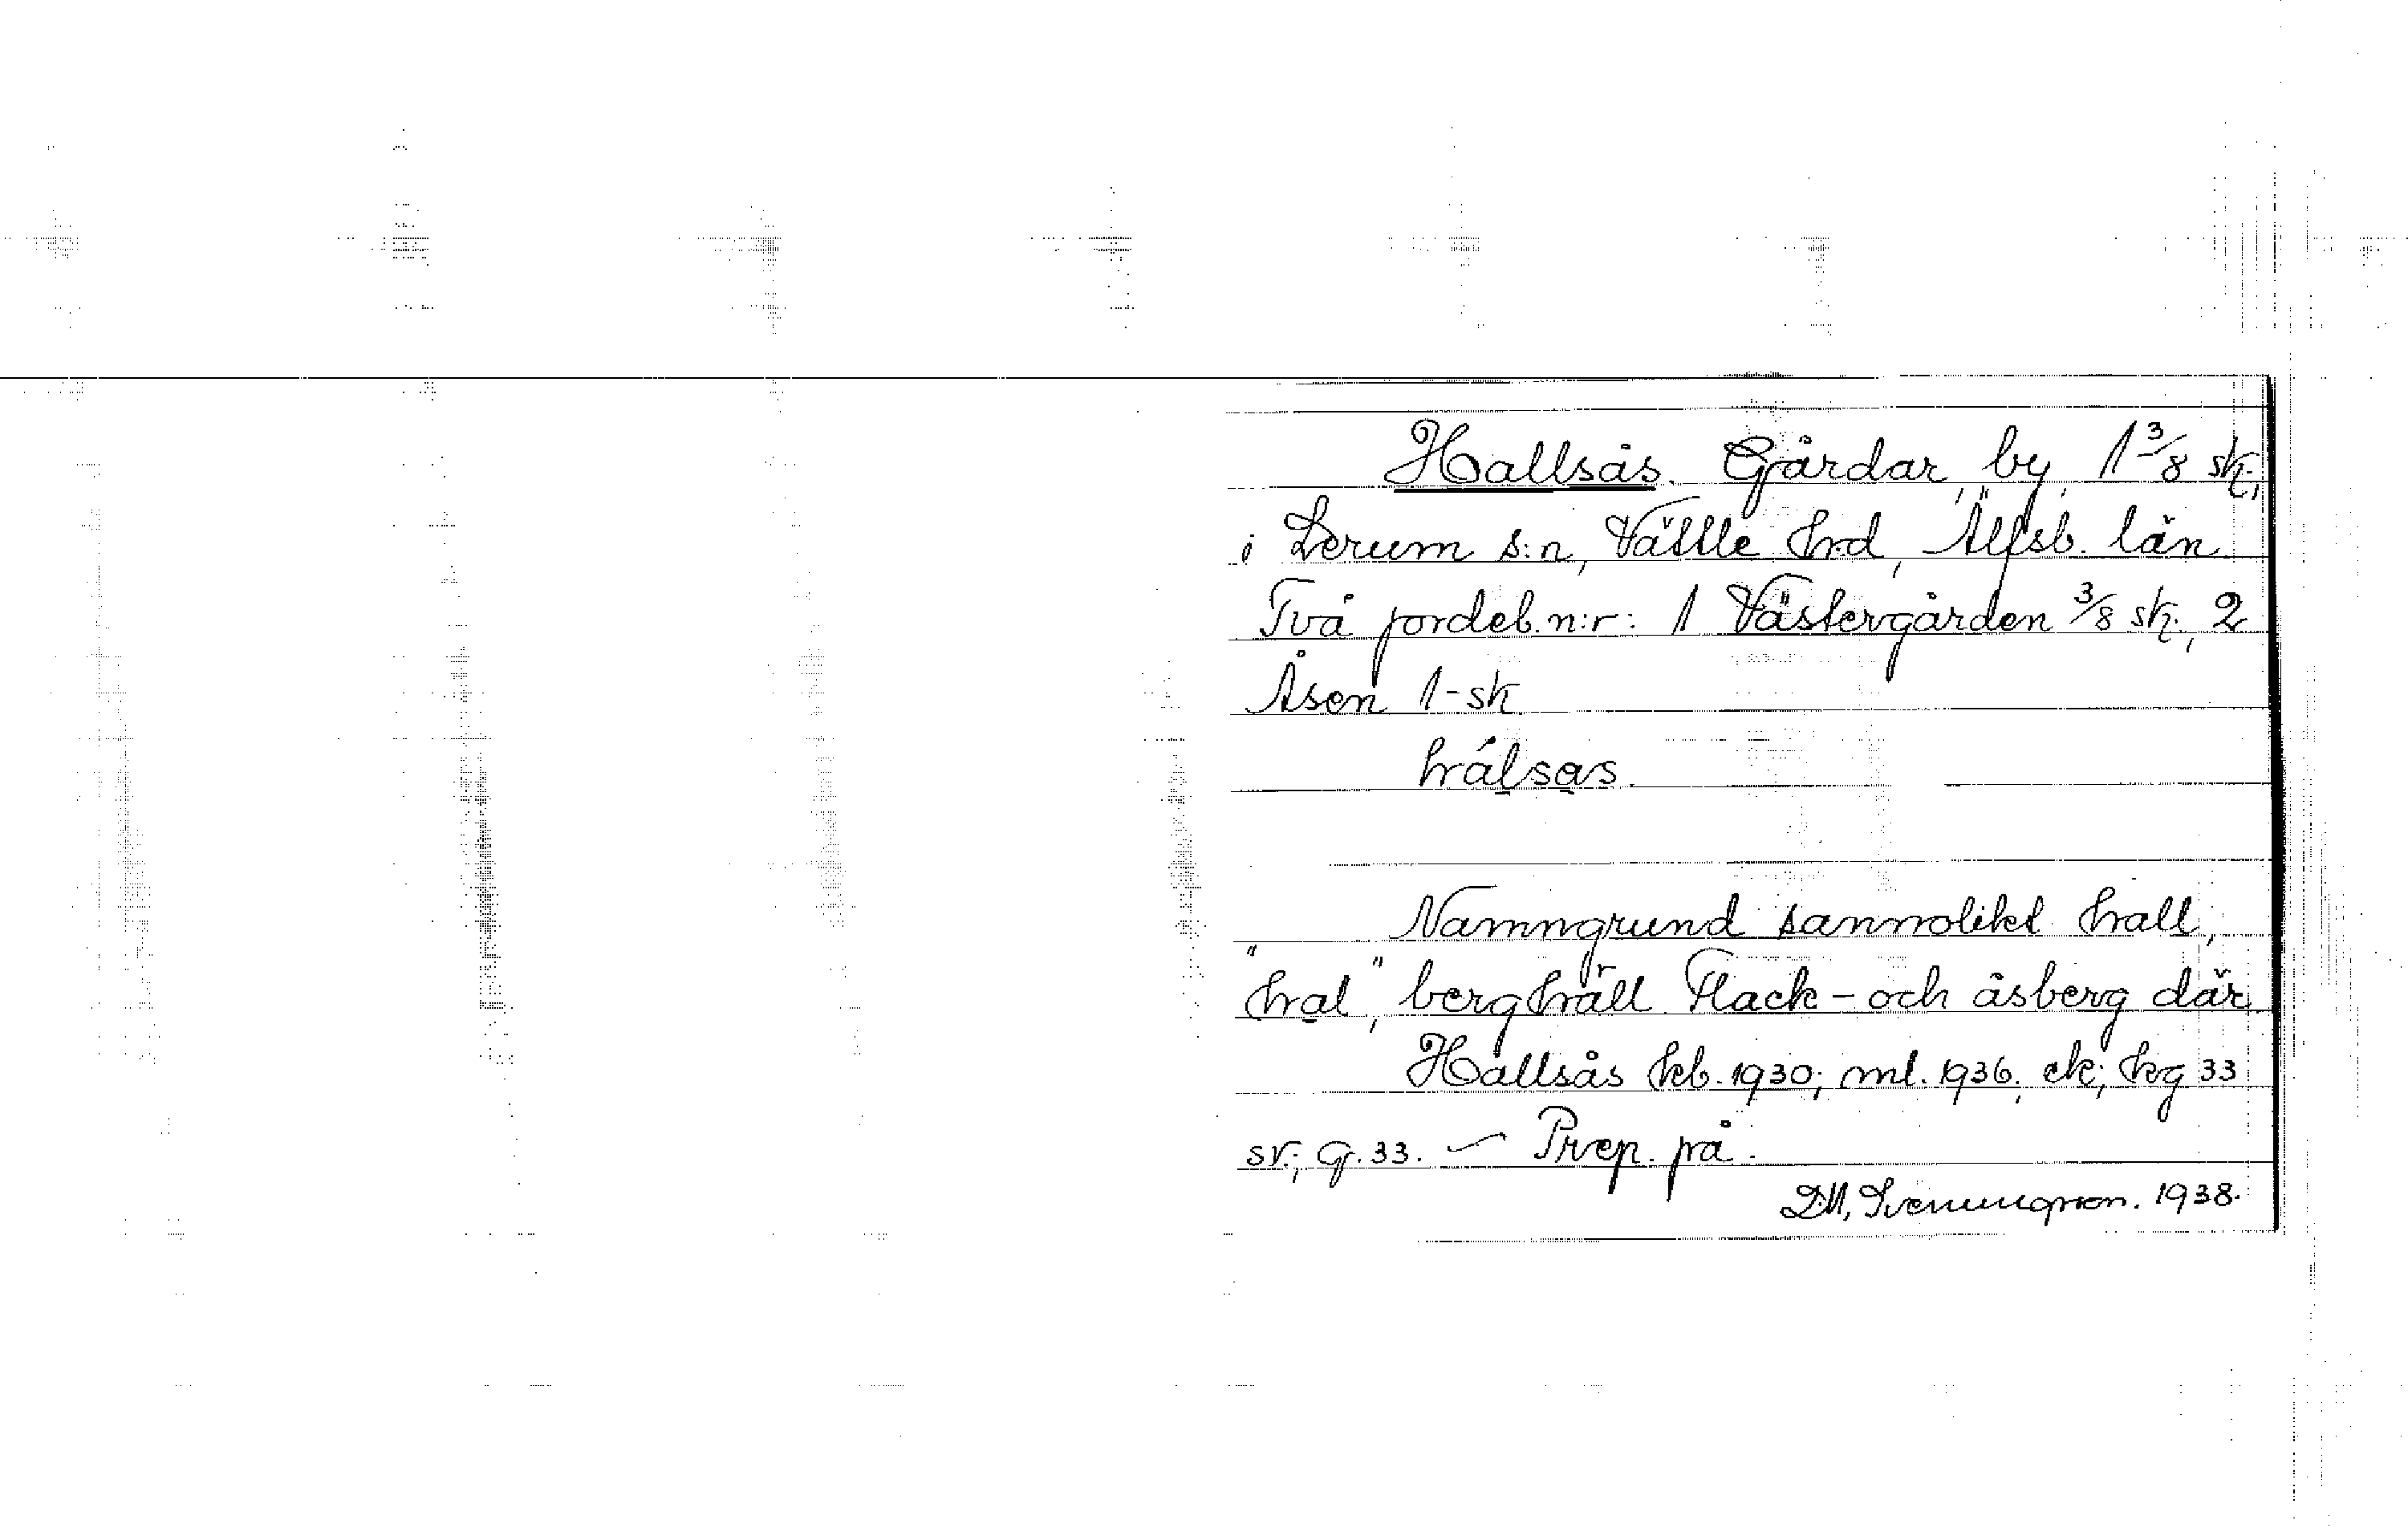 Hallsås. Gårdar, by, 1 3/8 sk.,
i Lerum s:n, Vättle hrd, Älfsb. län.
Två jordeb. n:r: 1 Västergården 3/8 sk., 2
Åsen 1-sk
hálsas
Namngrund sannolikt hall,
"hal", berghäll. Flack- och åsberg där.
Hallsås kb. 1930; ml. 1936, ek; hg 33
sv.; G. 33. – Prep. på.
1938.